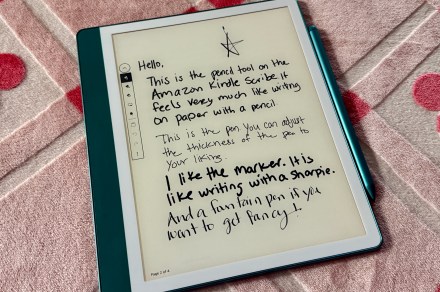 Hello,
This is the pencil tool on the
Amazon Kindle Scribe it
feels very much like writing
on paper with a pencil
This is the pen you can adjust
the thickness of the pen to
your liking.
I like the marker. It is
like writing with a sharpie.
And a fantain pen if you
want to get fancy!
Page 2 of 4